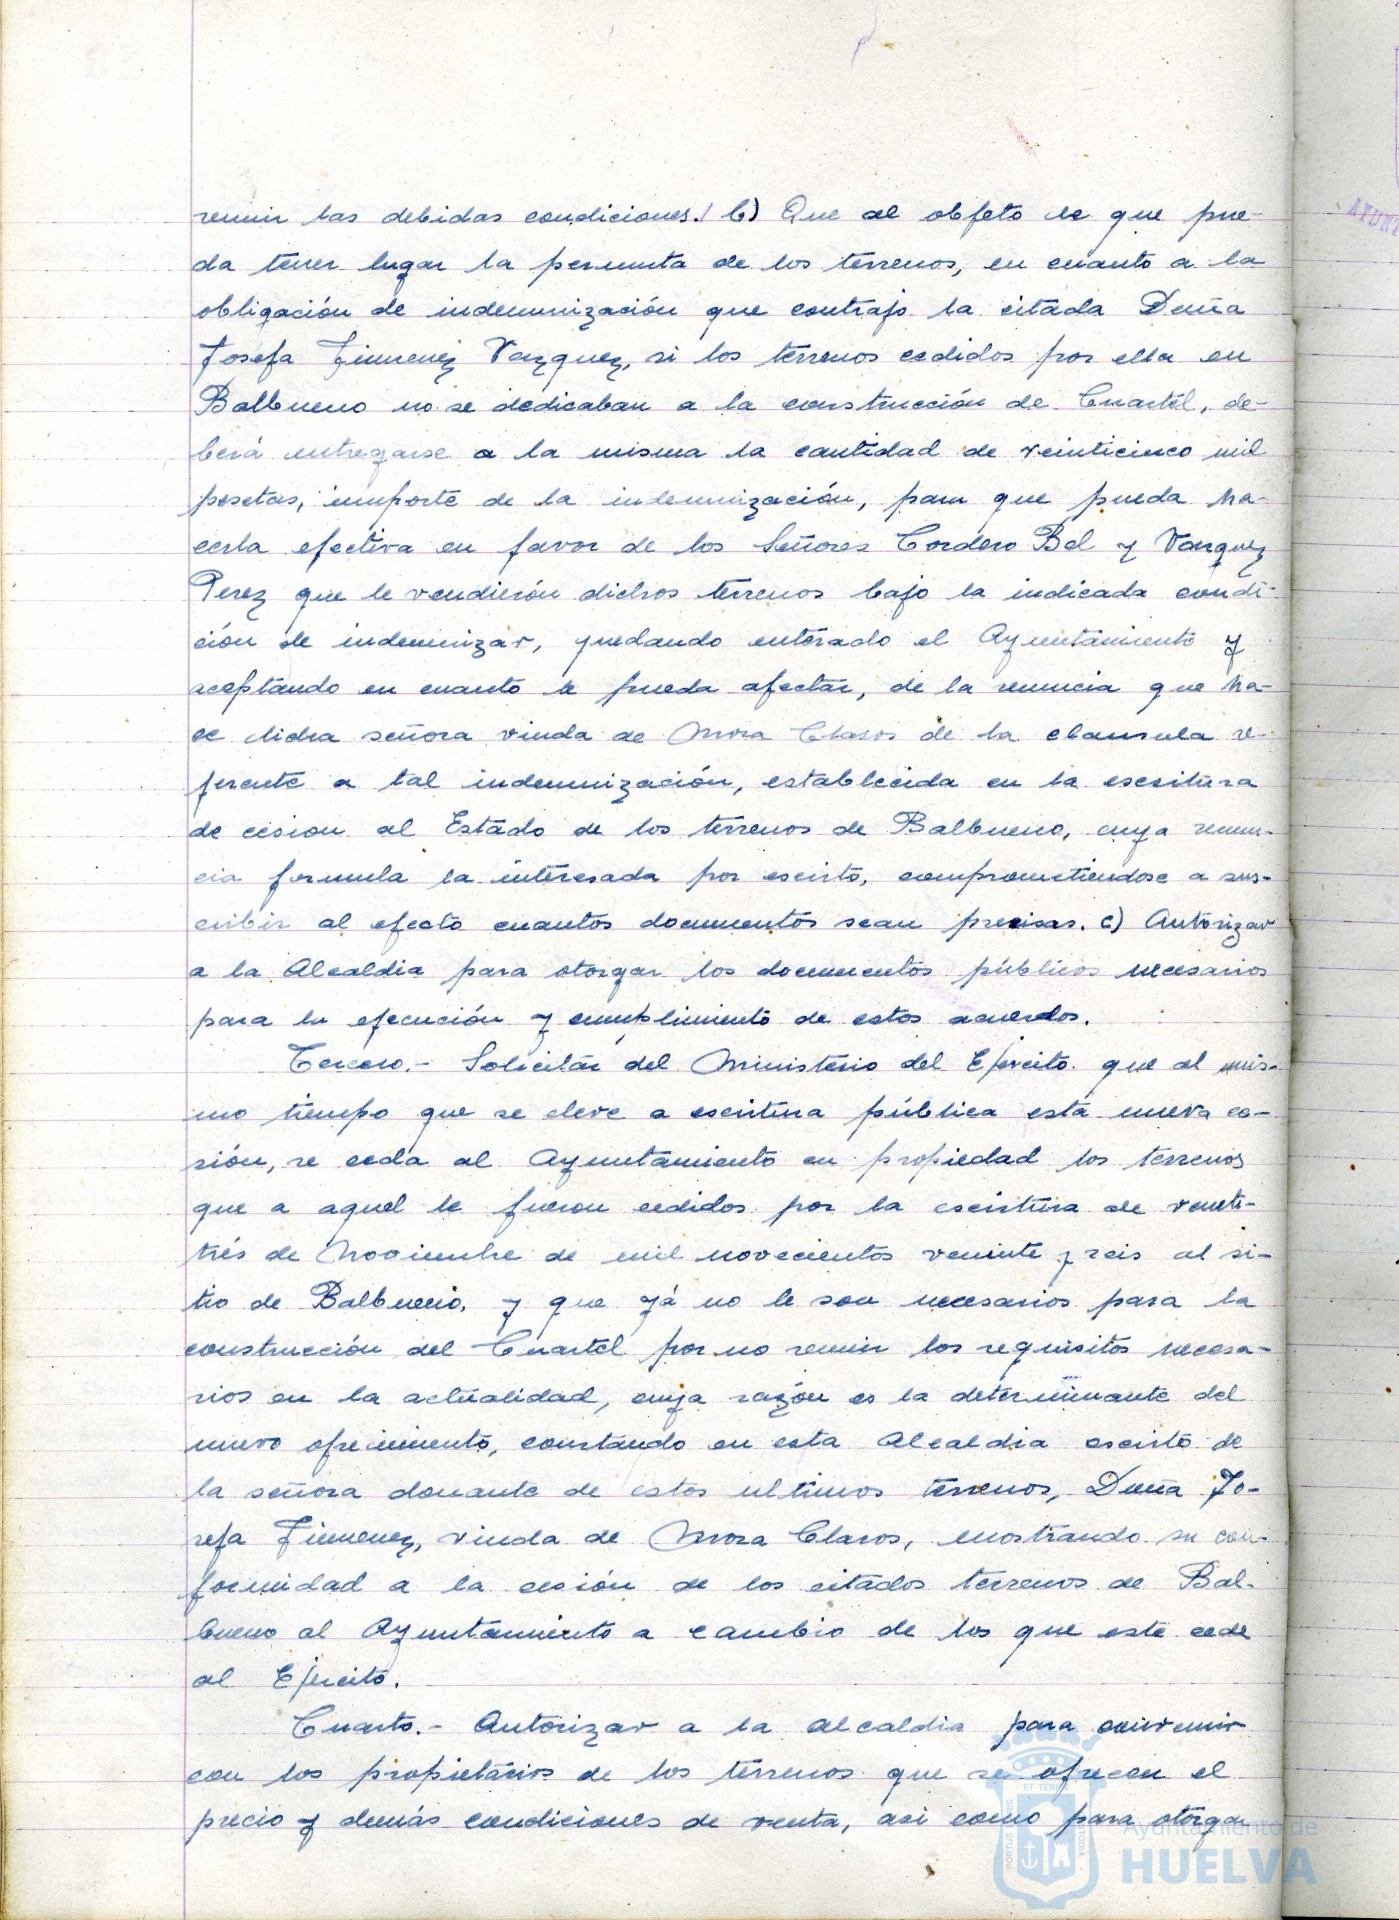 reunir las debidas condiciones./ b) Que al objeto de que pue-
da tener lugar la permuta de los terrenos, en cuanto a la
obligación de indemnización que contrajo la citada Doña
Josefa Jimenez Vazquez, si los terrenos cedidos por ella en
Balbueno no se dedicaban a la construcción de Cuartel, de-
berá entregarse a la misma la cantidad de veinticinco mil
pesetas, importe de la indemnización, para que pueda ha-
cerla efectiva en favor de los Señores Cordero Bel y Vazquez
Perez que le vendierón dichos terrenos bajo la indicada condi-
ción de indemnizar, quedando enterado el Ayuntamiento y
aceptando en cuanto le pueda afectar, de la renuncia que ha-
ce dicha señora viuda de Mora Claros de la clausula re-
ferente a tal indemnización, establecida en la escritura
de cesion al Estado de los terrenos de Balbueno, cuya renun-
cia formula la interesada por escrito, comprometiendose a sus-
cribir al efecto cuantos documentos sean precisas. c) Autorizar
a la Alcaldia para otorgar los documentos públicos necesarios
para la ejecución y cumplimiento de estos acuerdos.
Tercero.- Solicitar del Ministerio del Ejército que al mis-
mo tiempo que se eleve a escritura pública esta nueva ce-
sión, se ceda al Ayuntamiento en propiedad los terrenos
que a aquel le fueron cedidos por la escritura de venti-
trés de Noviembre de mil novecientos veninte y seis al si-
tio de Balbueno, y que yá no le son necesarios para la
construcción del Cuartel por no reunir los requisitos necesa-
rios en la actualidad, cuya razón es la determinante del
nuevo ofrecimiento, constando en esta Alcaldia escrito de
la señora donante de estos ultimos terrenos, Doña Jo-
sefa Jimenez, viuda de Mora Claros, mostrando su con-
formidad a la cesión de los citados terrenos de Bal-
bueno al Ayuntamiento a cambio de los que este cede
al Ejército.
Cuarto.- Autorizar a la alcaldia para convenir
con los propietarios de los terrenos que se ofrecen el
precio y demás condiciones de venta, asi como para otorgar
AYUNT
ET TERRÆ
PORTUS MARIS
CUSTODIA
Ayuntamiento de
HUELVA